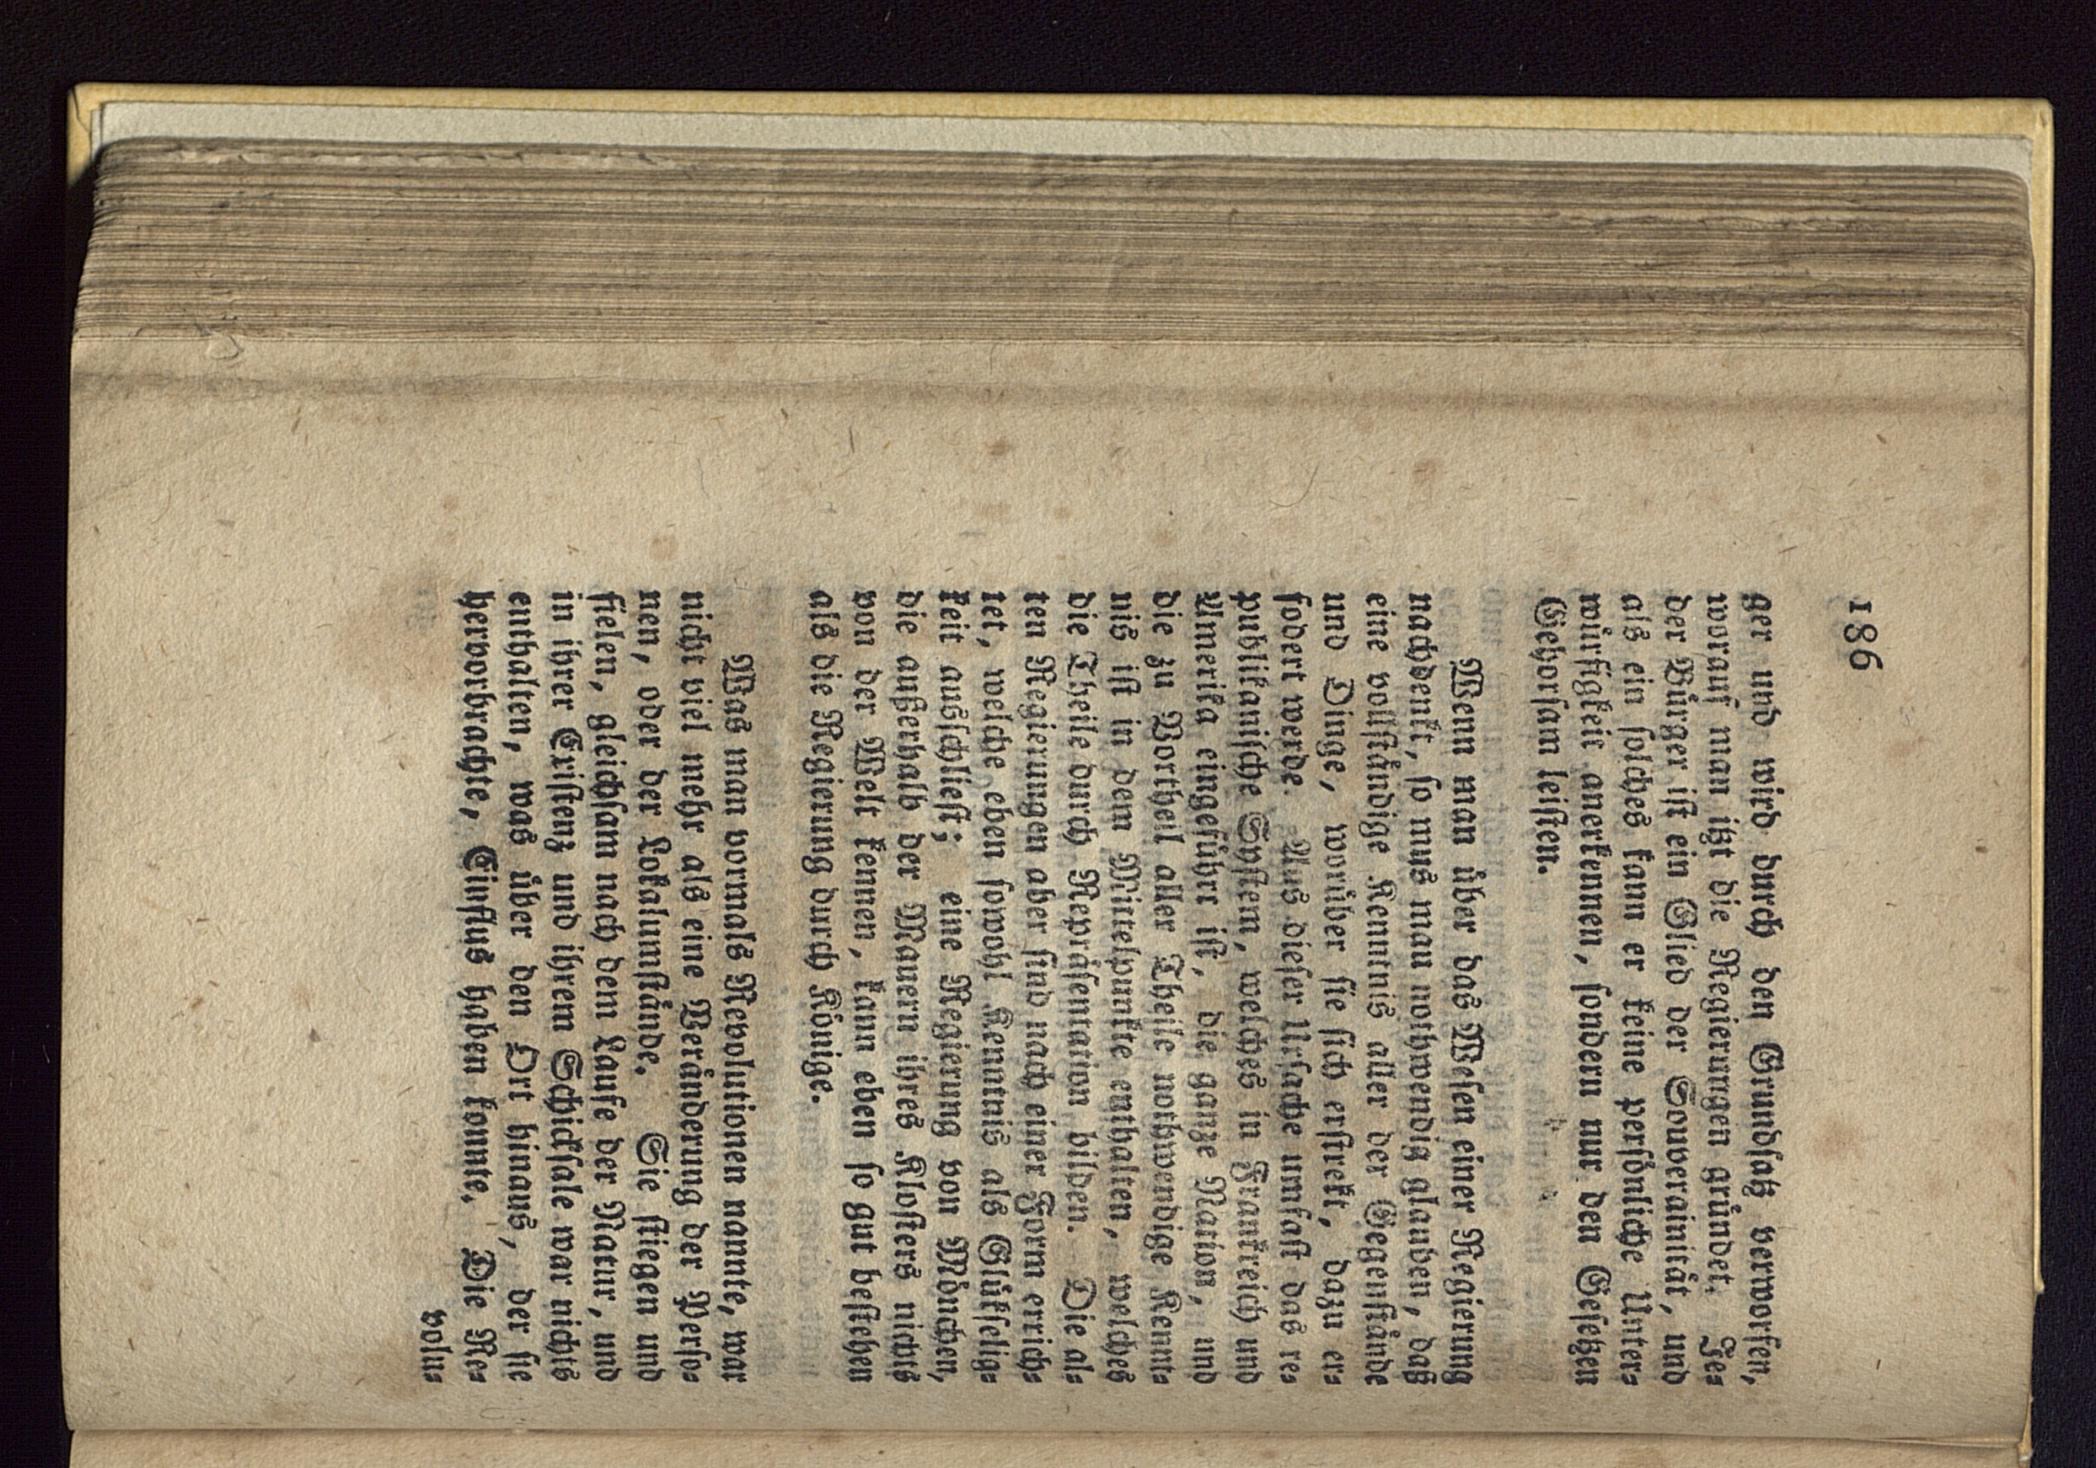 186
ger und wird durch den Grundsatz verworfen,
worauf man itzt die Regierungen gründet. Je⸗
der Bürger ist ein Glied der Souverainität, und
als ein solches kann er keine persönliche Unter⸗
würfigkeit anerkennen, sondern nur den Gesetzen
Gehorsam leisten.
Wenn man über das Wesen einer Regierung
nachdenkt, so mus man nothwendig glauben, daß
eine vollständige Kenntnis aller der Gegenstände
und Dinge, worüber sie sich erstrekt, dazu er⸗
fodert werde. Aus dieser Ursache umfast das re⸗
publikanische System, welches in Frankreich und
Amerika eingeführt ist, die ganze Nation, und
die zu Vortheil aller Theile nothwendige Kennt⸗
nis ist in dem Mittelpunkte enthalten, welches
die Theile durch Repräsentation bilden. Die al⸗
ten Regierungen aber sind nach einer Form errich⸗
tet, welche eben sowohl Kenntnis als Glükselig⸗
keit ausschliest; eine Regierung von Mönchen,
die außerhalb der Mauern ihres Klosters nichts
von der Welt kennen, kann eben so gut bestehen
als die Regierung durch Könige.
Was man vormals Revolutionen nannte, war
nicht viel mehr als eine Veränderung der Perso⸗
nen, oder der Lokalumstände. Sie stiegen und
fielen, gleichsam nach dem Laufe der Natur, und
in ihrer Existenz und ihrem Schiksale war nichts
enthalten, was über den Ort hinaus, der sie
hervorbrachte, Einflus haben konnte. Die Re⸗
volu⸗